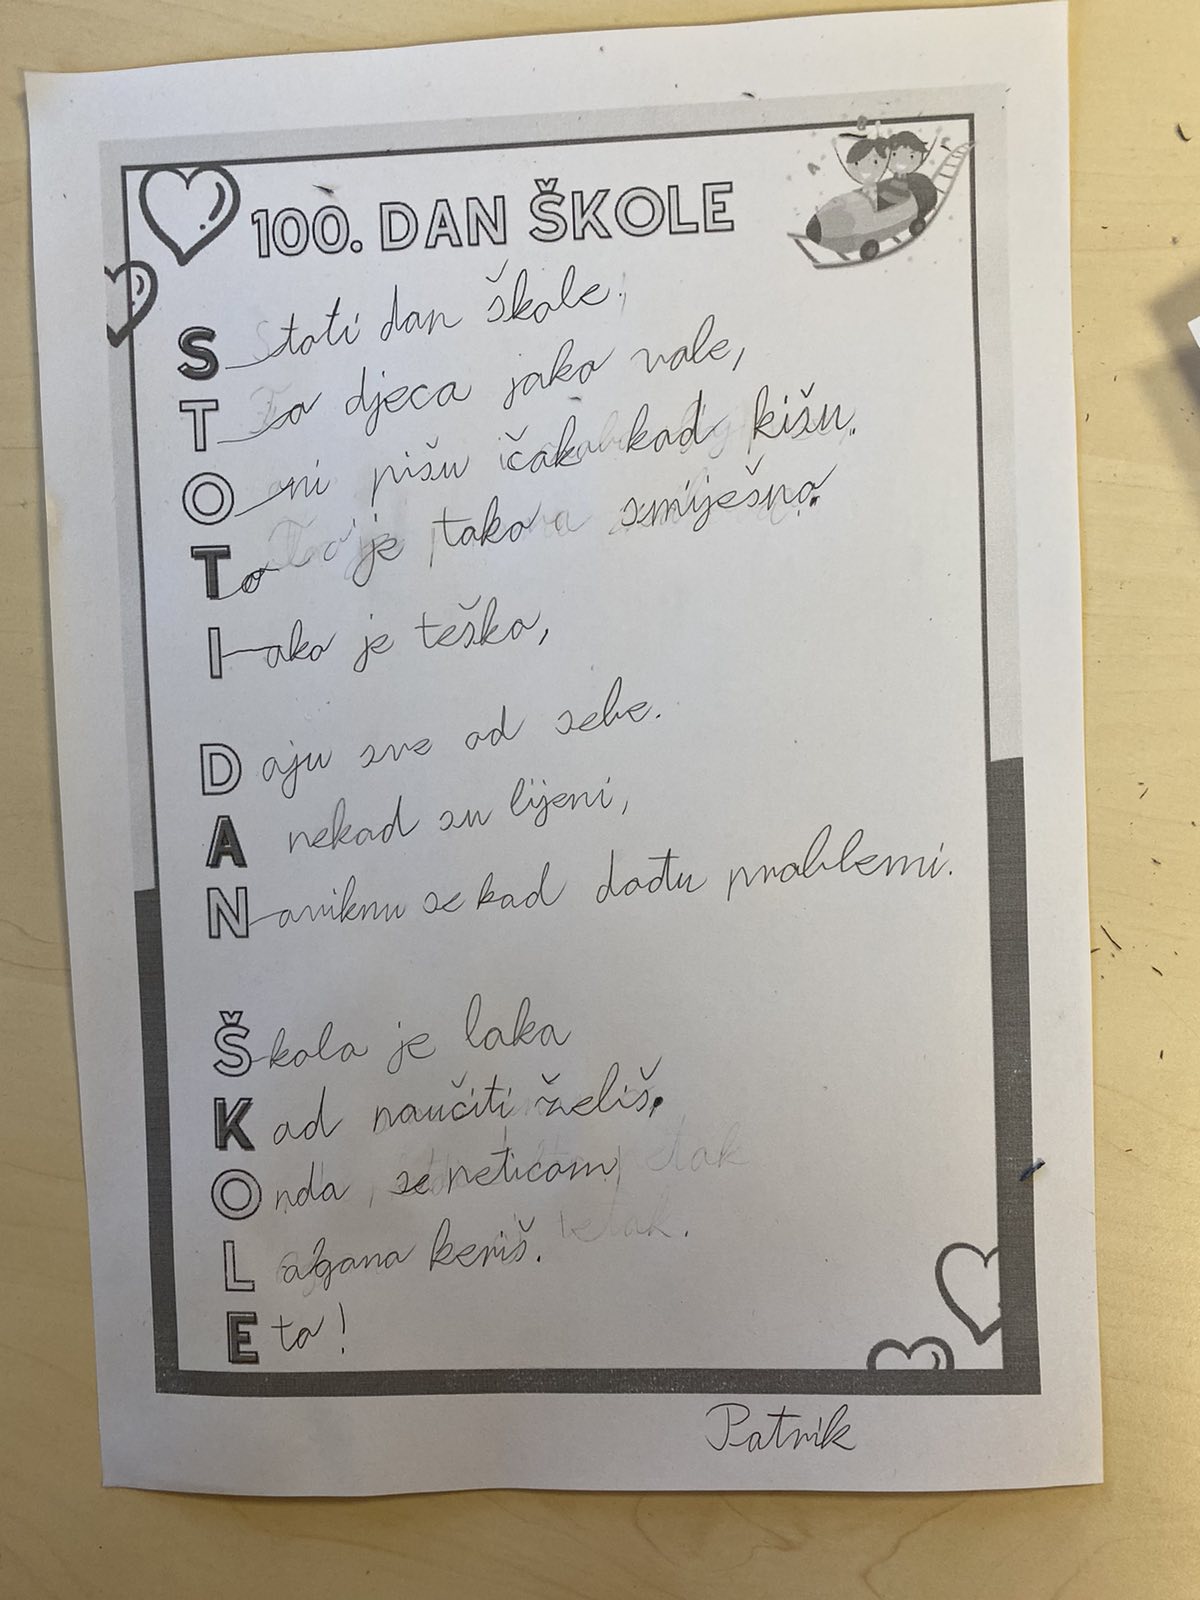 100. DAN ŠKOLE
Stoti dan škole,
To djeca jako vole,
Oni pišu čak kad kišu.
To je tako smiješno.
Iako je teško,
Daju sve od sebe.
A nekad su lijeni,
Naviknu se kad dođu problemi.
Škola je laka
Kad naučiti želiš.
Onda s peticom,
Lagana keriš.
Eto!
Patrik